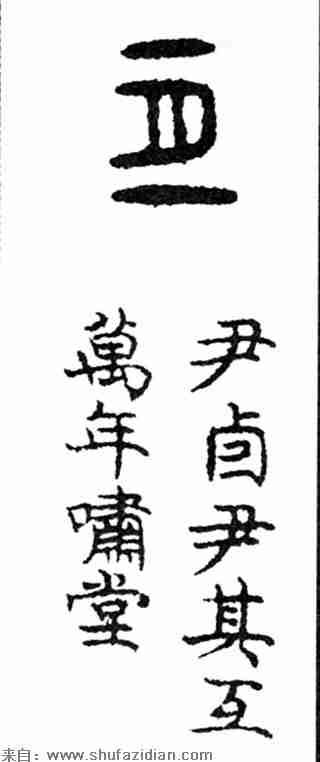 尹卣尹其互
萬年嘯堂
来自：www.shufazidian.com